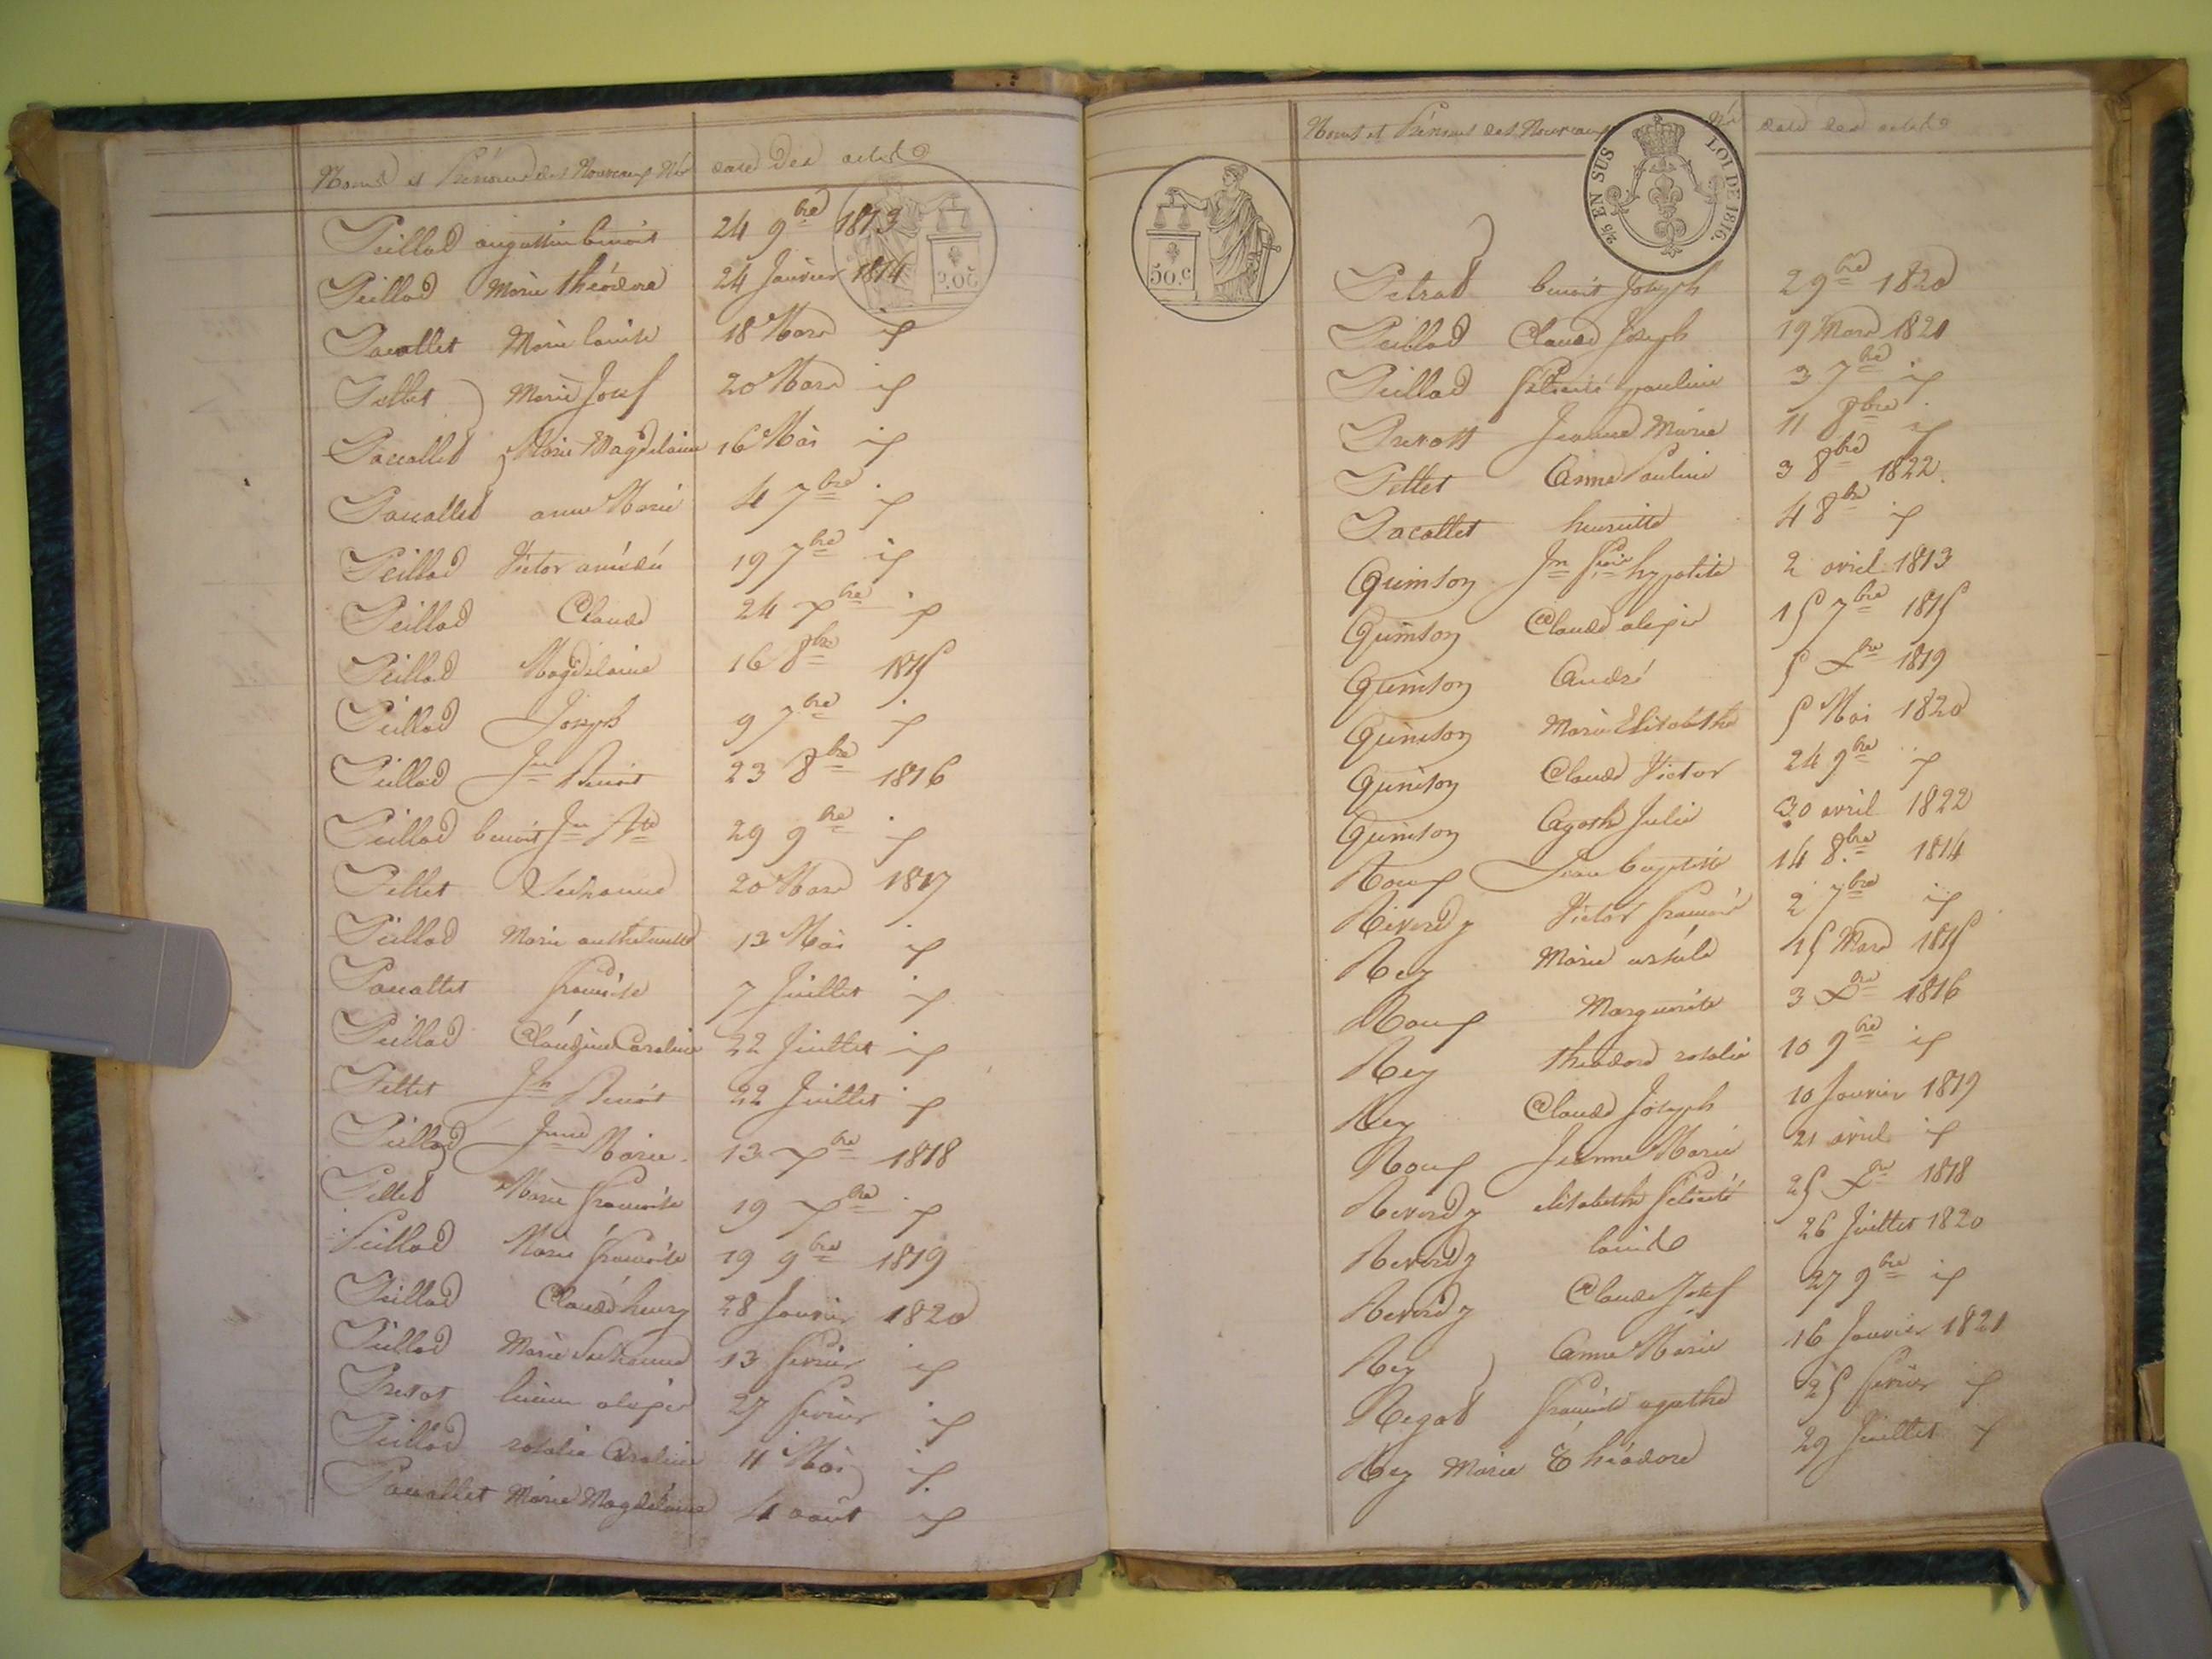 Noms et Prénoms des Nouveaux Nés date des actes
Peillod augustin benoit 24 9bre 1813
Peillod Marie théodore 24 Janvier 1814
Pacallet Marie louise 18 Mars id
Pellet Marie Josef 20 Mars id
Pacallet Marie Magdelaine 16 Mai id
Pacallet anne Marie 4 7bre id
Peillod Victor amédé 19 7bre id
Peillod Claude 24 Xbre id
Peillod Magdelaine 16 8bre 1815
Peillod Joseph 9 7bre id
Peillod Jn Benoit 23 8bre 1816
Peillod benoit Jn Bte 29 9bre id
Pellet Suzanne 20 Mars 1817
Peillod Marie anthelmette 13 Mai id
Pacallet françoise 7 Juillet id
Peillod Claudine Caroline 22 Juillet id
Pellet Jh Benoit 22 Juillet id
Peillod Jnne Marie 13 Xbre 1818
Pellet Marie françoise 19 Xbre id
Peillod Marie françoise 19 9bre 1819
Peillod Claude henry 28 Janvier 1820
Peillod Marie Suzanne 13 fevrier id
Prevot alexis 27 fevrier id
Peillod rosalie Caroline 11 Mai id
Pacallet Marie Magdelaine 4 août id
50.c
Noms et Prénoms des Nouveaux Nés date des actes
2/5 EN SUS LOI DE 1816.
50.c
Petrod benoit Joseph 2 9bre 1820
Peillod Claude Joseph 19 Mars 1821
Peillod félicité pauline 3 7bre id
Prevost Jeanne Marie 11 8bre id
Pellet Anne Pauline 3 8bre 1822
Pacallet henriette 4 8bre id
Quinson Jn hypolite 2 avril 1813
Quinson Claude alexis 15 7bre 1815
Quinson André 5 Xbre 1819
Quinson Marie Elisabeth 5 Mai 1820
Quinson Claude Victor 24 9bre id
Quinson Agath Julie 30 avril 1822
Roux Jean baptiste 14 8bre 1814
Reverdy Victor françois 2 7bre id
Rey Marie ursule 15 Mars 1815
Roux Marguerite 3 Xbre 1816
Rey théodore rosalie 10 9bre id
Rey Claude Joseph 10 Janvier 1819
Roux Jeanne Marie 21 avril id
Reverdy elisabeth félicité 25 Xbre 1818
Reverdy louise 26 Juillet 1820
Reverdy Claude Josef 27 9bre id
Rey Anne Marie 16 Janvier 1821
Regad françoise agathe 25 fevrier id
Rey Marie Théodore 29 Juillet id